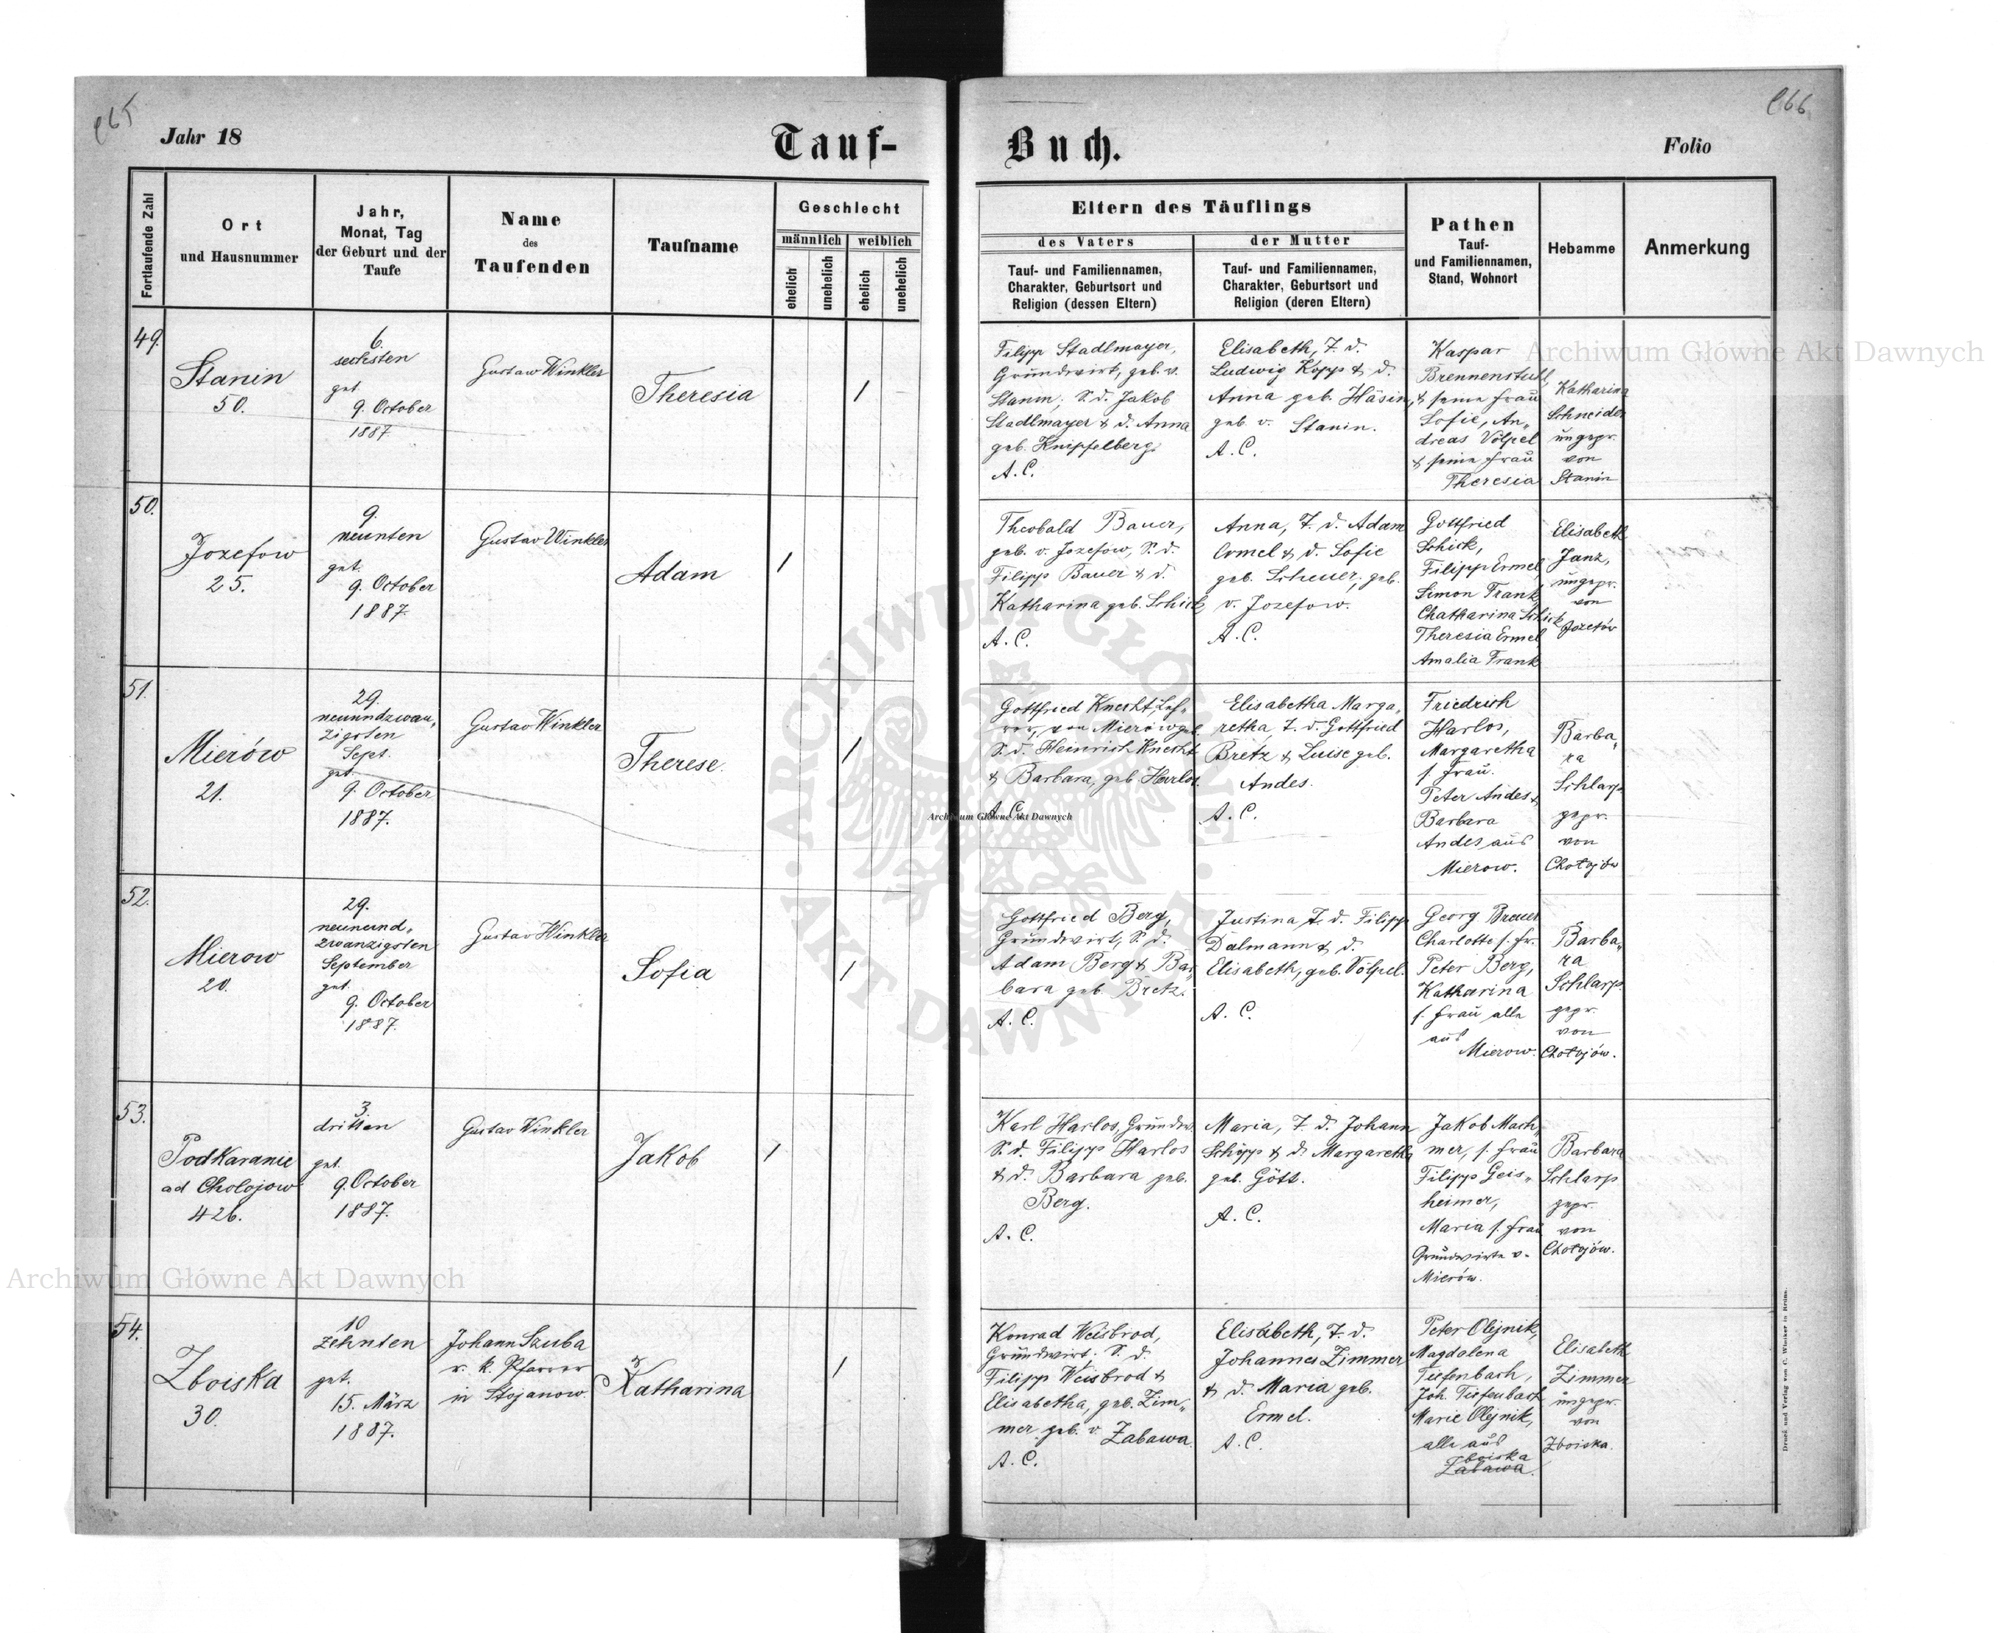 265
Jahr 18
Tauf-
Buch.
Folio
266
Fortlaufende Zahl
Ort
und Hausnummer
Jahr,
Monat, Tag
der Geburt und der
Taufe
Name
des
Taufenden
Taufname
Geschlecht
männlich
weiblich
ehelich
unehelich
ehelich
unehelich
Eltern des Täuflings
des Vaters
Tauf- und Familiennamen,
Charakter, Geburtsort und
Religion (dessen Eltern)
der Mutter
Tauf- und Familiennamen,
Charakter, Geburtsort und
Religion (deren Eltern)
Pathen
Tauf-
und Familiennamen,
Stand, Wohnort
Hebamme
Anmerkung
49.
Stanin
50.
6.
sechsten
get.
9. October
1887
Gustav Winkler
Theresia
/
Filipp Stadlmayer,
Grundwirt, geb. v.
Stanin, S. d. Jakob
Stadlmayer & d. Anna
geb. Knipfelberg.
A. C.
Elisabeth, T. d.
Ludwig Kopp & d.
Anna geb. Häsin,
geb. v. Stanin.
A. C.
Kaspar
Brennenstuhl,
& seine Frau
Sofie, An„
dreas Völpel
& seine Frau
Theresia
Katharina
Schneider
ungepr.
von
Stanin
50.
Jozefow
25.
9.
neunten
get.
9. October
1887.
Gustav Winkler
Adam
/
Theobald Bauer,
geb. v. Jozefow, S. d.
Filipp Bauer & d.
Katharina geb. Schick
A. C.
Anna, T. d. Adam
Ermel & d. Sofie
geb. Scheuer, geb.
v. Jozefow.
A. C.
Gottfried
Schick,
Filipp Ermel,
Simon Frank,
Chatharina Schick
Theresia Ermel,
Amalia Frank
Elisabeth
Janz,
ungepr.
von
Jozefów
51.
Mierów
21.
29.
neunundzwan„
zigsten
Sept.
get.
9. October
1887.
Gustav Winkler
Therese.
/
Gottfried Knecht,
von Mierów
S. d. Heinrich Knecht
& Barbara, geb. Harlos.
A. C.
Elisabetha Marga„
retha, T. d. Gottfried
Bretz & Luise geb.
Andes.
A. C.
Friedrich
Harlos,
Margaretha
s. Frau.
Peter Andes &
Barbara
Andes aus
Mierow.
Barba„
ra
Schlarp
gepr.
von
Chołojów
52.
Mierow
20.
29.
neunund„
zwanzigsten
September
get.
9. October
1887.
Gustav Winkler
Sofia
/
Gottfried Berg,
Grundwirt, S. d.
Adam Berg & Bar„
bara geb. Bretz.
A. C.
Justina, T. d. Filipp
Dalmann & d.
Elisabeth, geb. Völpel.
A. C.
Georg Breuer
Charlotte s. Fr.
Peter Berg,
Katharina
s. Frau alle
aus
Mierow.
Barba„
ra
Schlarp
gepr.
von
Chołojów.
53.
Podkaranie
ad Cholojow
426.
3.
dritten
get.
9. October
1887.
Gustav Winkler
Jakob
/
Karl Harlos, Grundw.
S. d. Filipp Harlos
& d. Barbara geb.
Berg.
A. C.
Maria, T. d. Johann
Schöpp & d. Margaretha
geb. Gött.
A. C.
Jakob Mach„
mer, s. Frau
Filipp Geis„
heimer,
Maria s. Frau
Grundwirte v.
Mierów.
Barbara
Schlarp
gepr.
von
Chołojów.
54.
Zboiska
30.
10
zehnten
get.
15. März
1887.
Johann Szuba
r. k. Pfarrer
in Stojanow.
Katharina
/
Konrad Weisbrod,
Grundwirt. S. d.
Filipp Weisbrod &
Elisabetha, geb. Zim„
mer geb. v. Zabawa.
A. C.
Elisabeth, T. d.
Johannes Zimmer
& d. Maria geb.
Ermel.
A. C.
Peter Olejnik,
Magdalena
Tiefenbach,
Joh. Tiefenbach,
Marie Olejnik,
alle aus
Zboiska
Zabawa.
Elisabeth
Zimmer
ungepr.
von
Zboiska.
Druck und Verlag von C. Winiker in Brünn.
Archiwum Główne Akt Dawnych
Archiwum Główne Akt Dawnych
Archiwum Główne Akt Dawnych
ARCHIWUM GŁÓWNE · AKT DAWNYCH ·